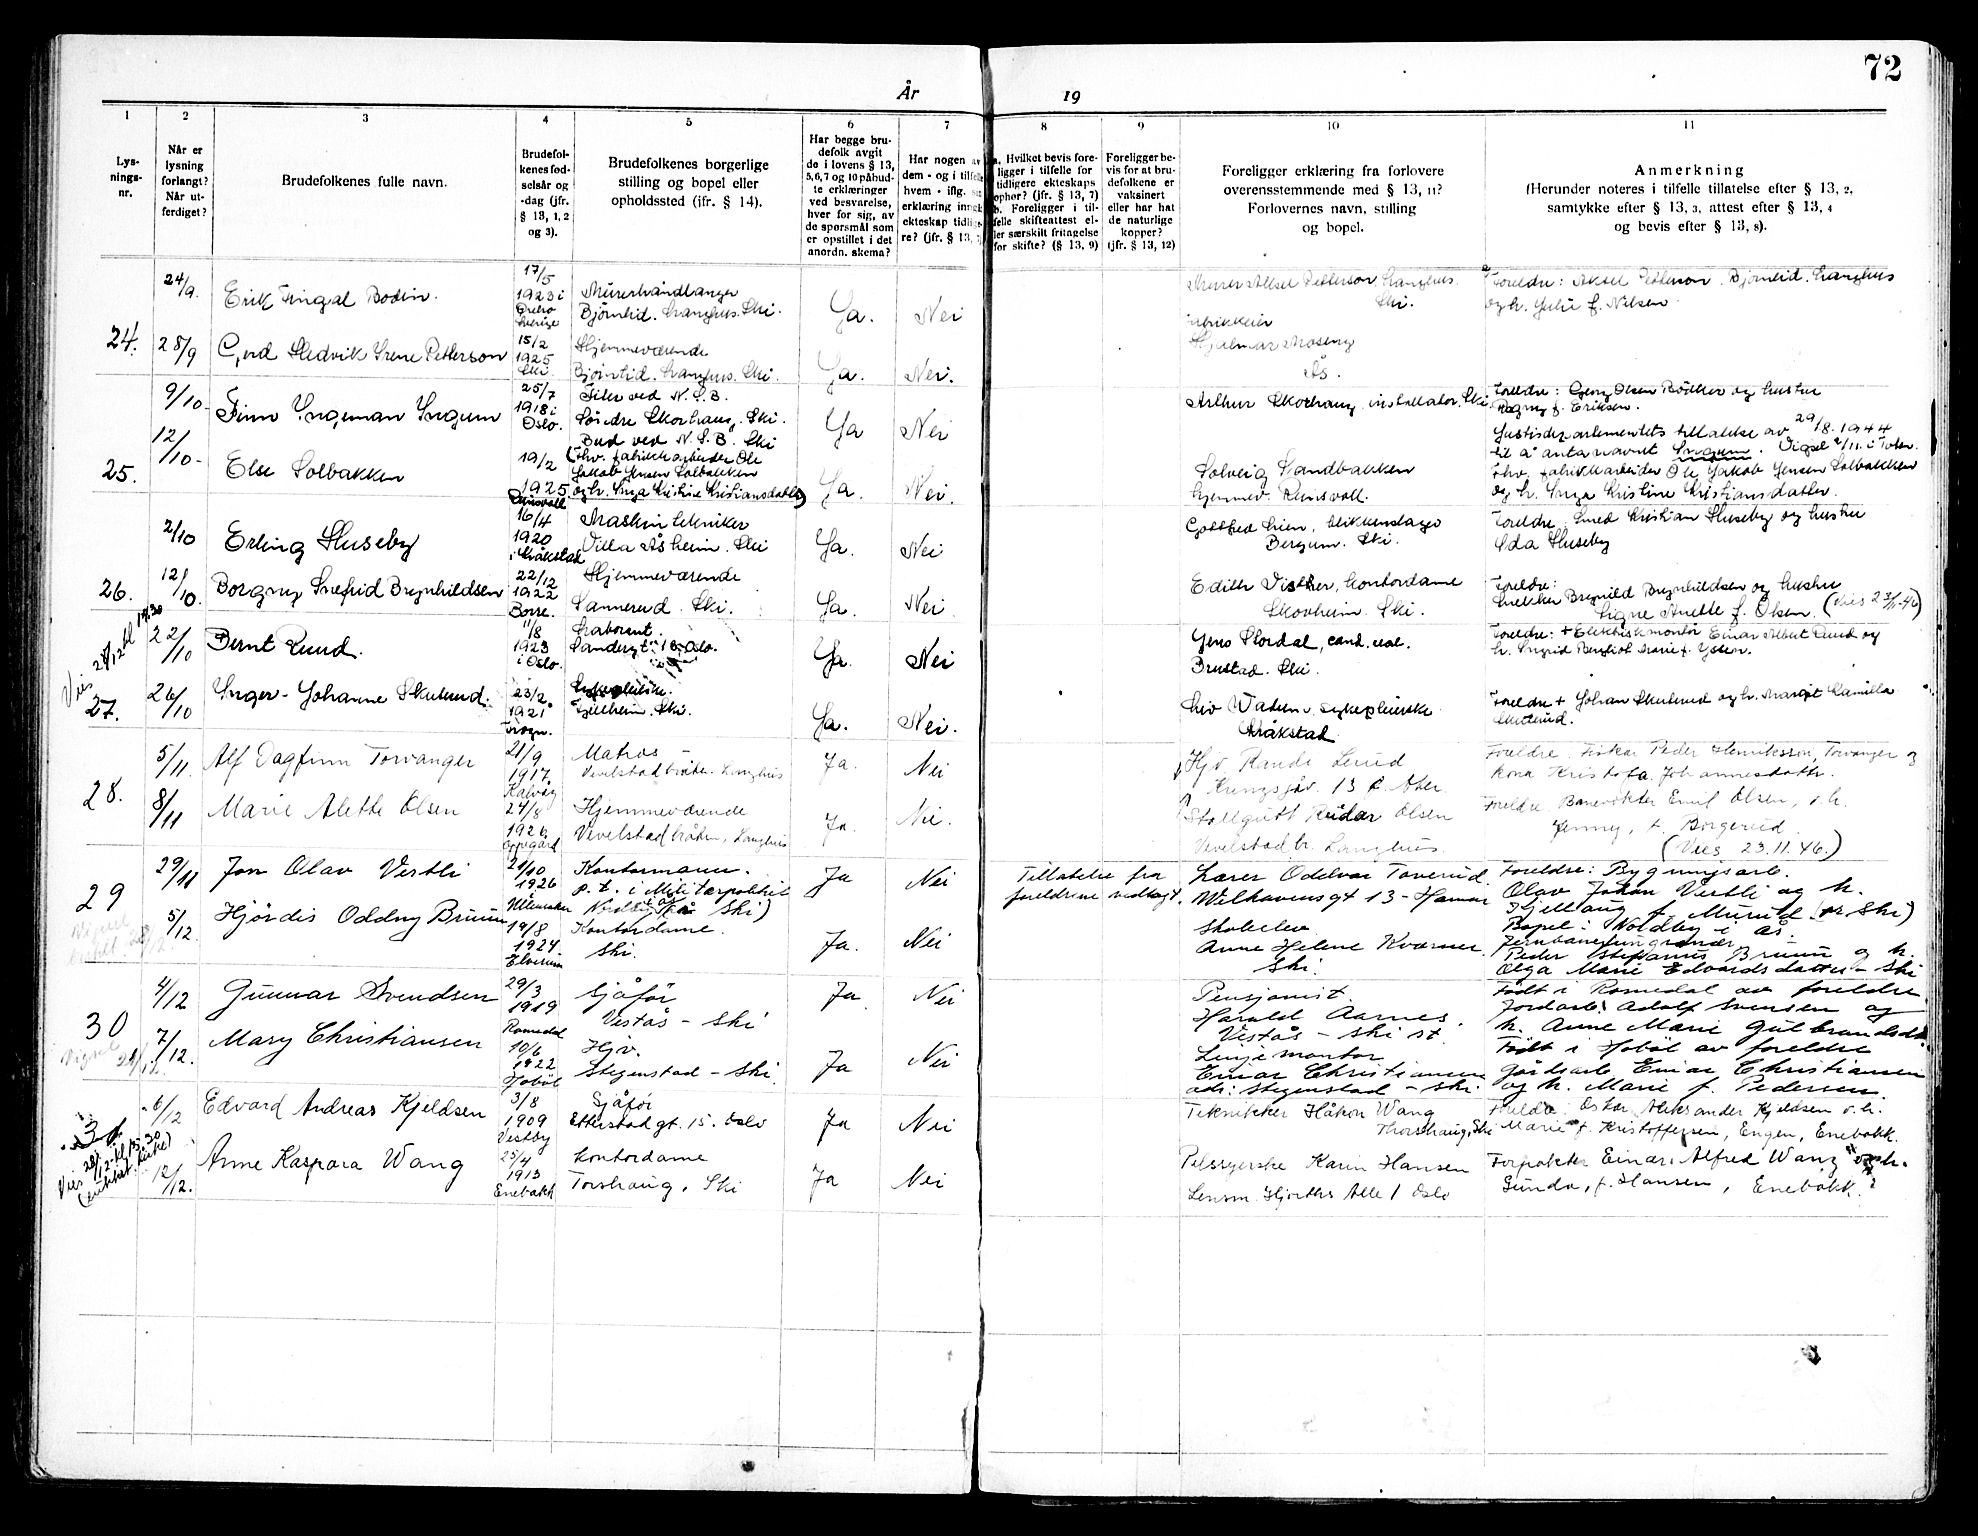 72
År 19
1 2 3 4 5 6 7 8 9 10 11
Lys-
nings-
nr.
Når er
lysning
forlangt?
Når ut-
ferdiget?
Brudefolkenes fulle navn.
Brudefol-
kenes fød-
selsår og
-dag (jfr.
§ 13, 1, 2
og 3).
Brudefolkenes borgerlige
stilling og bopel eller
opholdssted (jfr. § 14).
Har begge bru-
defolk avgit
de i lovens § 13,
5, 6, 7 og 10 påbud-
te erklæringer
ved besvarelse,
hver for sig, av
de spørsmål som
er opstillet i det
anordn. skema?
Har nogen av
dem - og i tilfelle
hvem - iflg. sin
erklæring inngått
ekteskap tidlige-
re? (jfr. § 13,
a. Hvilket bevis fore-
ligger i tilfelle for
tidligere ekteskaps
ophør? (jfr. § 13, 7)
b. Foreligger i til-
felle skifteattest el-
ler særskilt fritagelse
for skifte? (§ 13, 9)
Foreligger be-
vis for at bru-
defolkene er
vaksinert
eller har hat
de naturlige
kopper?
(jfr. § 13, 12)
Foreligger erklæring fra forlovere
overensstemmende med § 13, 11?
Forlovernes navn, stilling
og bopel.
Anmerkning
(Herunder noteres i tilfelle tillatelse efter § 13, 2,
samtykke efter § 13, 3, attest efter § 13, 4
og bevis efter § 13, 8).
24.
24/9.
Erik Fingal Bodin.
17/5
1923 i
Örebro
Sverige
Murerhåndlanger
Bjørnlid. Langhus. Ski.
Ja.
Nei
Murer Aksel Petterson, Langhus.
Ski.
Foreldre: Aksel Petterson. Bjørnlid. Langhus
og h. Julie f. Nilsen
28/9
Gerd Hedvik Irene Petterson
15/2
1925
Ski.
Hjemmeværende
Bjørnlid. Langhus. Ski.
Ja.
Nei.
Fabrikkeier
Hjalmar Moseng
Ås.
25.
9/10-
Finn Ingeman Ingum
25/7
1918 i
Oslo.
Filer ved N.S.B.
Søndre Skorhaug. Ski.
Ja
Nei
Arthur Skorhaug, installatør, Ski
Foreldre: Georg Olsen Bödker og hustru
Ragny f. Eriksen.
Justisdepartementets tillatelse av 29/8. 1944
til å anta navnet Ingum. Vigsel 2/11. i Toten.
12/10-
Else Solbakken
19/2
1925
Reinsvoll
Bud ved N.S.B. Ski
(Fhv. fabrikkarbeider Ole
Jakob Jensen Solbakken
og h. Inga Kristine Kristiansdatter)
Ja.
Nei.
Solveig Sandbakken
hjemmev. Reinsvoll.
Fhv. fabrikkarbeider Ole Jakob Jensen Solbakken
og h. Inga Kristine Kristiansdatter.
26.
2/10
Erling Huseby
16/4
1920
i Kråkstad
Maskintekniker
Villa Åsheim. Ski
Ja.
Nei
Gottfred Lien, blikkenslager
Bergum. Ski.
Foreldre: Smed Kristian Huseby og hustru
Ida Huseby
12/10.
Borgny Snefrid Brynhildsen
22/12
1922
Borre.
Hjemmeværende
Sannerud. Ski.
Ja.
Nei
Edith Visther, kontordame
Skovheim. Ski.
Foreldre:
Snekker Brynild Brynhildsen og hustru
Signe Anette f. Olsen. (Vies 23/11-46)
27.
Vies 21/12 kl 14.30
22/10
Bernt Ruud.
11/8
1923
i Oslo.
Laborant.
Sandergt. 10. Oslo.
Ja.
Nei
Jens Stordal, cand. real.
Brustad. Ski
Foreldre: + Elektriskmontør Einar Albert Ruud og
h. Ingrid Bergliot Marie f. Ysteen.
26/10
Inger-Johanne Skuterud.
23/2.
1921
Frogn.
Sykepleierske.
Fjellheim. Ski.
Ja.
Nei.
Liv Watum, sykepleierske
Kråkstad
Foreldre + Johan Skuterud og h. Margit Kamilla
Skuterud.
28.
5/11.
Alf Dagfinn Torvanger
21/9
1917.
Kalvåg
Matros -
Vevelstadbråten. Langhus
Ja.
Nei
Hjv. Randi Lerud
Kringsjåv. 13 B. Aker.
Foreldre. Fisker Peder Henriksson Torvanger og
kona Kristofa Johannesdattr.
8/11
Marie Alette Olsen
24/8
1926
Oppegård
Hjemmeværende
Vevelstadbråten, Langhus
Ja.
Nei.
Stallgutt Reidar Olsen
Vevelstadbr. Langhus.
Foreldre. Banevokter Emil Olsen, o.h.
Jenny, f. Borgerud.
(Vies 23.11.46.)
29
29/11
Jon Olav Vestli
21/10
1926
Ullensaker
Kontormann.
p.t. i Militærpolitiet
Ja
Nei
Tillatelse fra
foreldrene vedlagt.
Lærer Oddvar Taverud
Welhavensgt 13 - Hamar
Foreldre: Bygningsarb.
Olav Johan Vestli og h.
Hjellaug f. Murud (pr. Ski)
Bopel: Noldby i Ås.
5/12.
Hjördis Oddny Bruun
19/8
1924
Elverum
Kontordame.
Ski.
Ja.
Nei
Skobelev
Anne Helene Kværner.
Ski.
Jernbanefungsjonær
Peder Stefanus Bruun og h.
Olga Marie Edvardsdatter - Ski
30
4/12
Gunnar Svendsen
29/3
1919
Romedal
Sjåför
Vestås - Ski
Ja
Nei
Pensjonist.
Harald Aarnes.
Vestås - Ski st.
Födt i Romedal av foreldre
Jordarb. Adolf Svensen og
h. Anne Marie Gulbrandsdtr.
7/12.
Mary Christiansen
10/6
1922
Hobøl
Hjv.
Stegenstad - Ski.
Ja
Nei
Linjemontör
Einar Christiansen
adr: Stegenstad - Ski.
Födt i Hobøl av foreldre
Gårdsarb. Einar Christiansen
og h. Marie f. Pedersen.
31.
Vies 28/12-kl 13.30
6/12
Edvard Andreas Kjeldsen
3/8
1909
Vestby
Sjåfør
Etterstadgt. 15. Oslo
Ja
Nei
Teknikker Håkon Wang
Thorshaug, Ski
Foreldre: Oskar Aleksander Kjeldsen o.h.
Marie f. Kristoffersen, Engen, Enebakk.
12/12.
Anne Kaspara Wang
25/4
1913
Enebakk
Kontordame
Torshaug, Ski
Ja
Nei
Pelssyerske Karin Hansen
Lensm. Hjorths Alle 1 Oslo
Forpakter Einar Alfred Wang og h.
Gunda, f. Hansen, Enebakk.